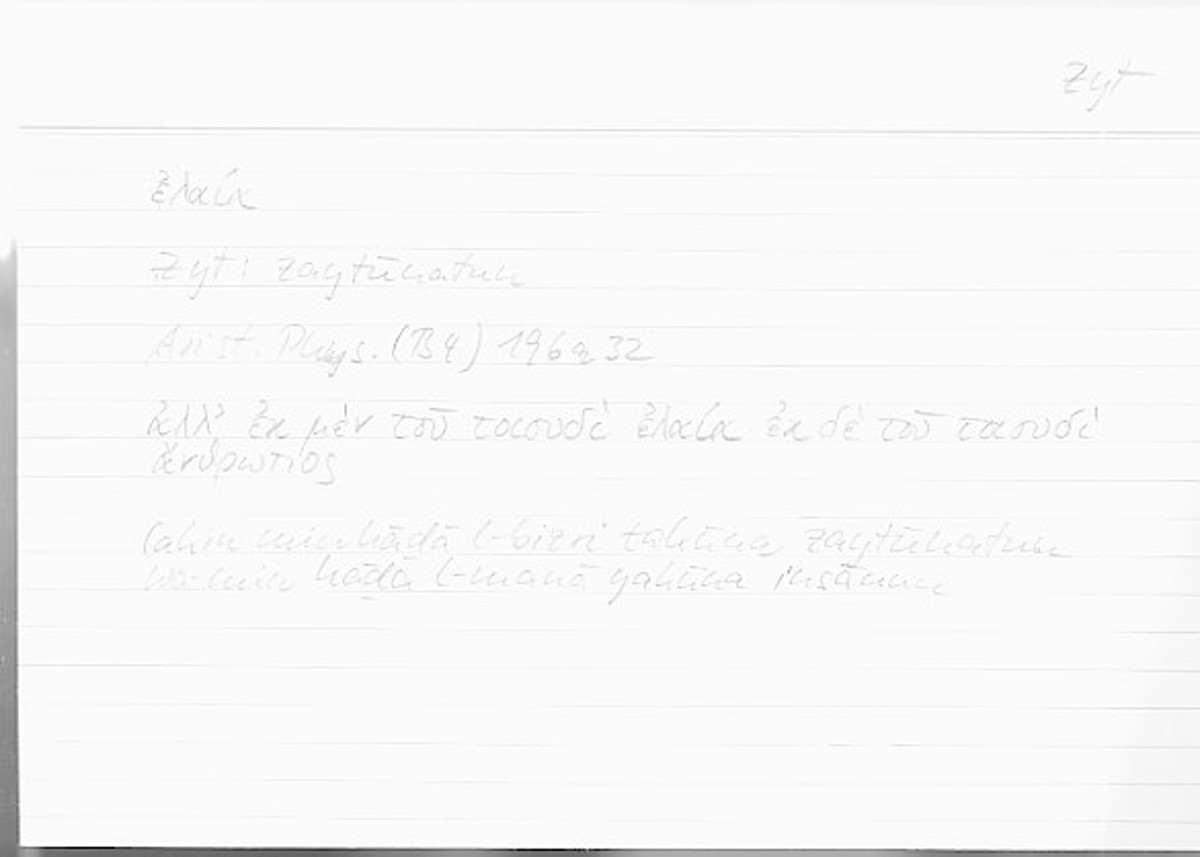 Zyt
ἐλαία
Zyt: zaytūnatun
Arist. Phys. (B4) 196a32
ἀλλ' ἐκ μὲν τοῦ τοιουδὶ ἐλαία ἐκ δὲ τοῦ τοιουδὶ
ἄνθρωπος
lakin min hāḏā l-bizri takūna zaytūnatun
wa-min hāḏā l-manā yakūna insānun